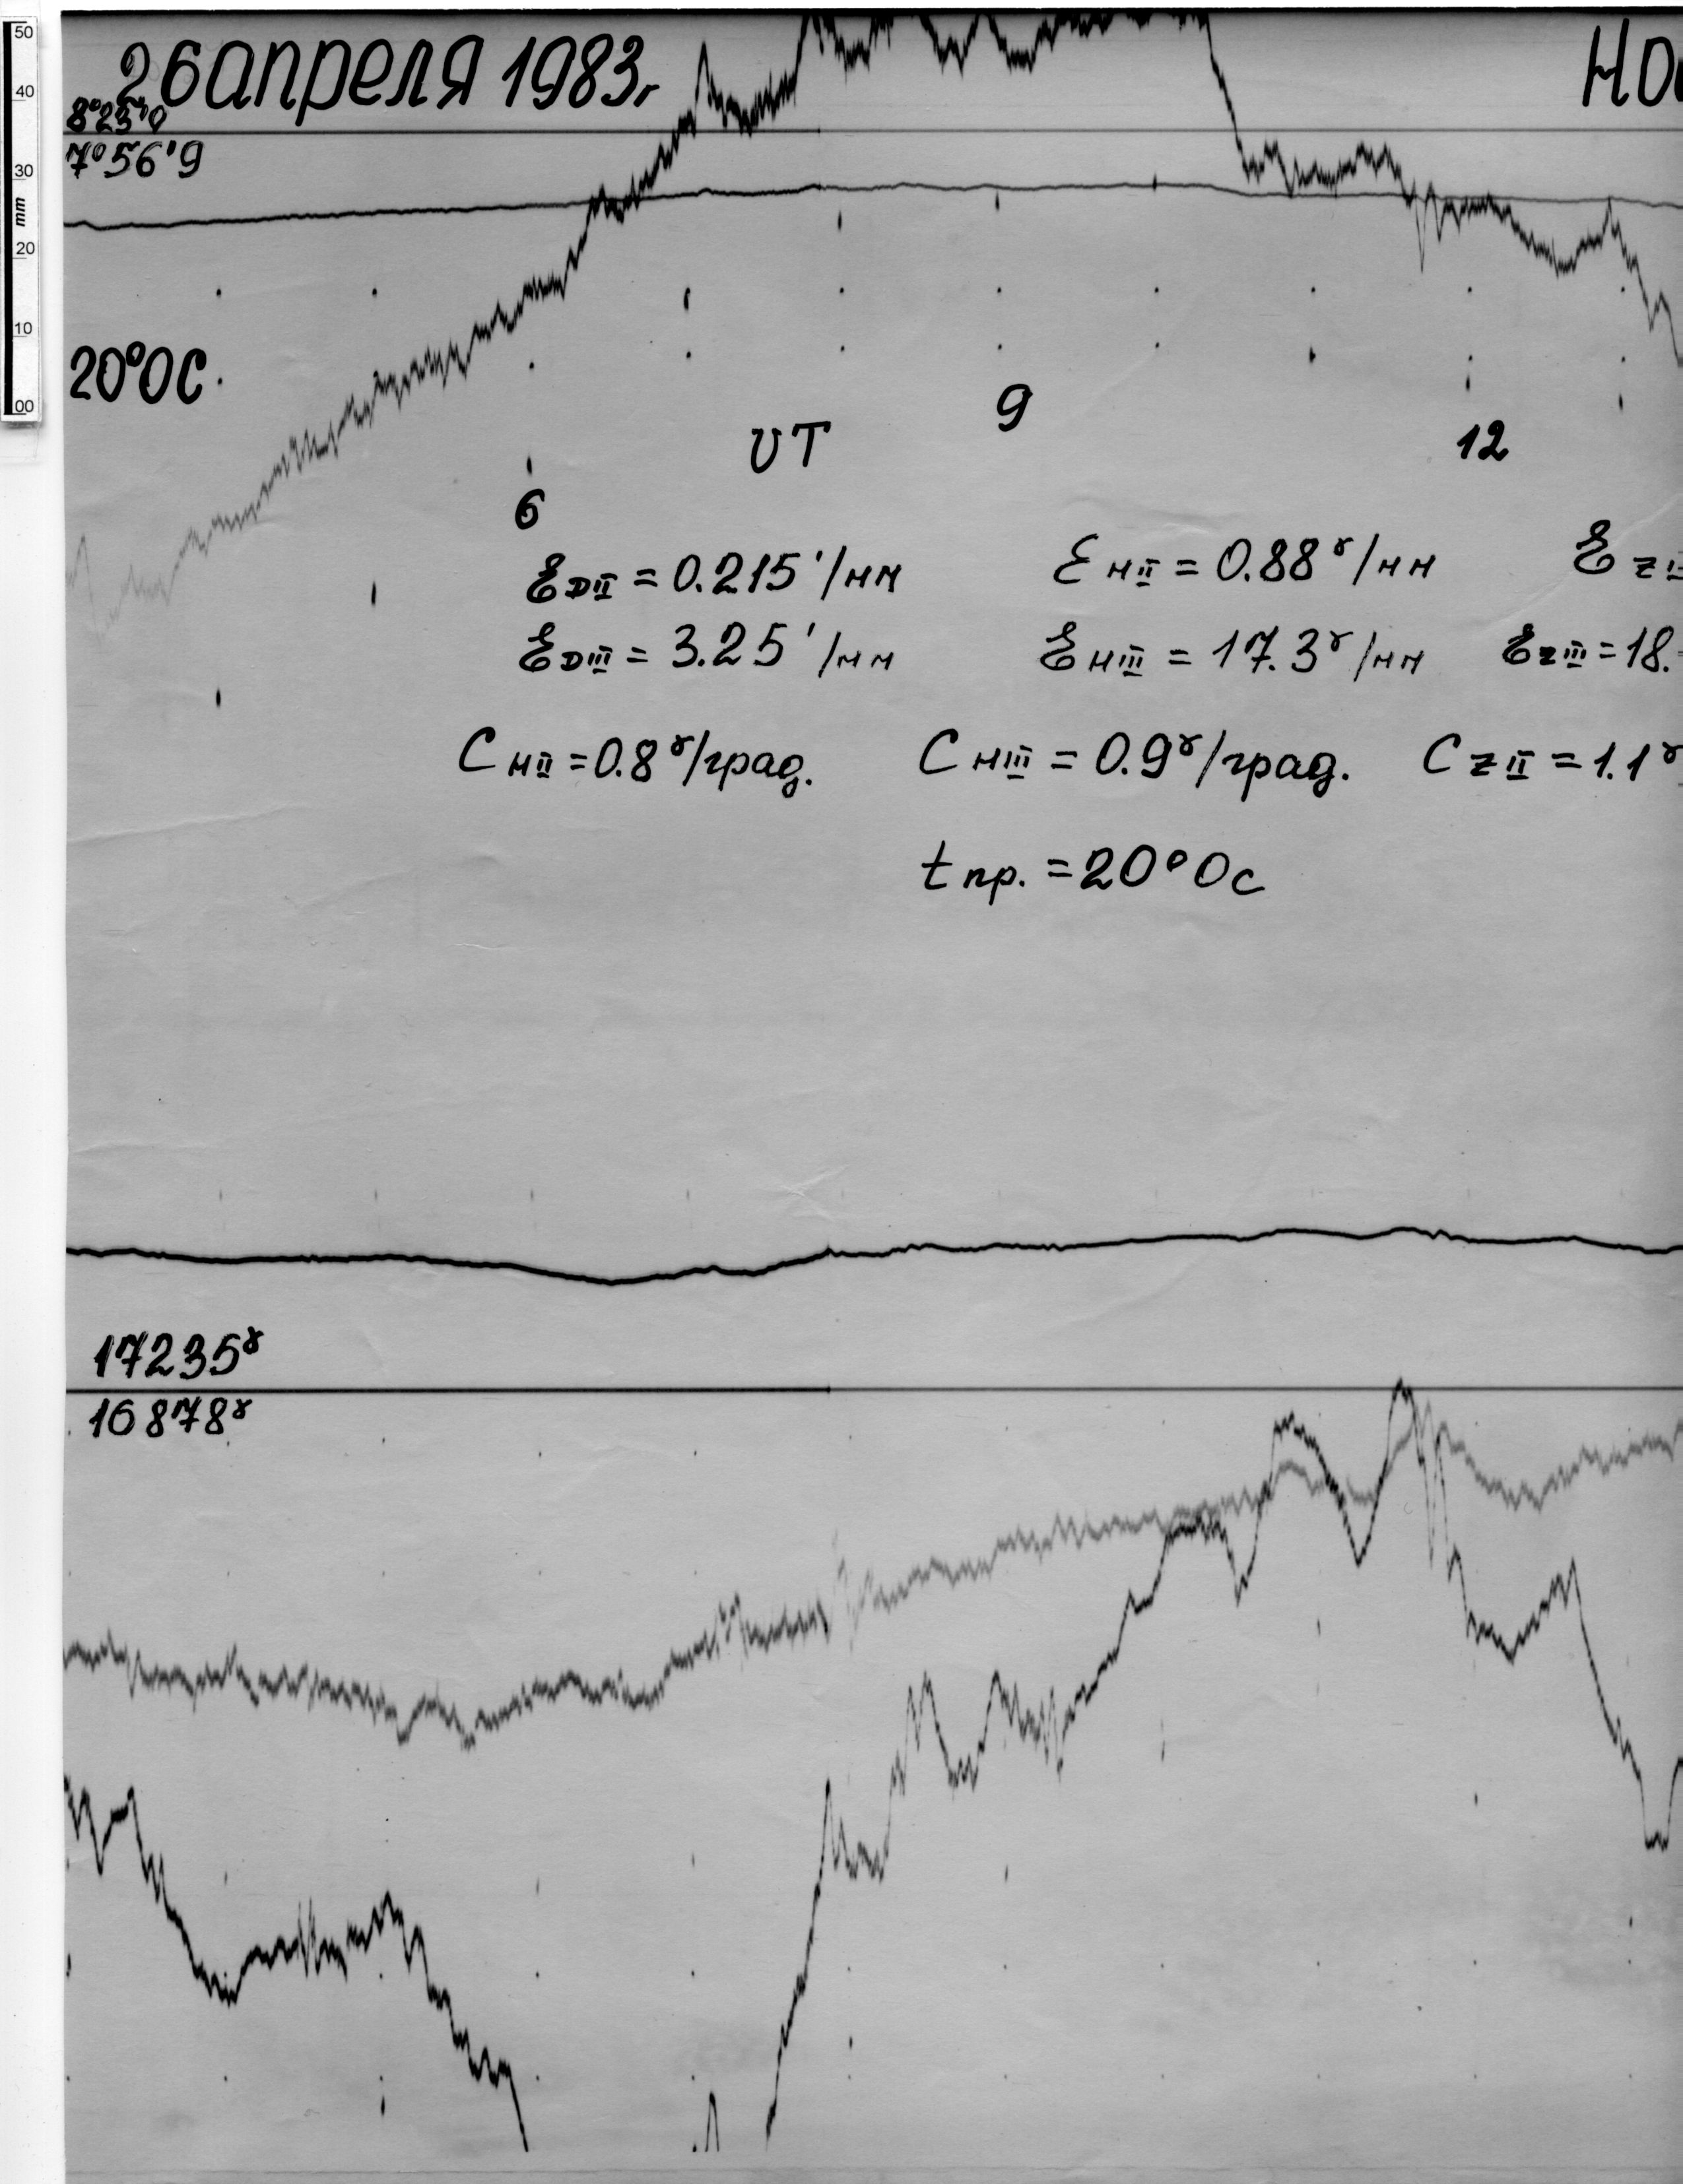 50
40
30
mm
20
10
00
26 апреля 1983г
8°23'0
7°56'9
20°0С
UT
9
12
6
ƐDII = 0.215'/мм
ƐHII = 0.88ɣ/мм
ƐZII
ƐDIII = 3.25'/мм
ƐHIII = 17.3ɣ/мм
ƐZIII = 18.
CHII = 0.8ɣ/град.
CHIII = 0.9ɣ/град.
CZII = 1.1ɣ
tпр. = 20°0с
17235ɣ
16878ɣ